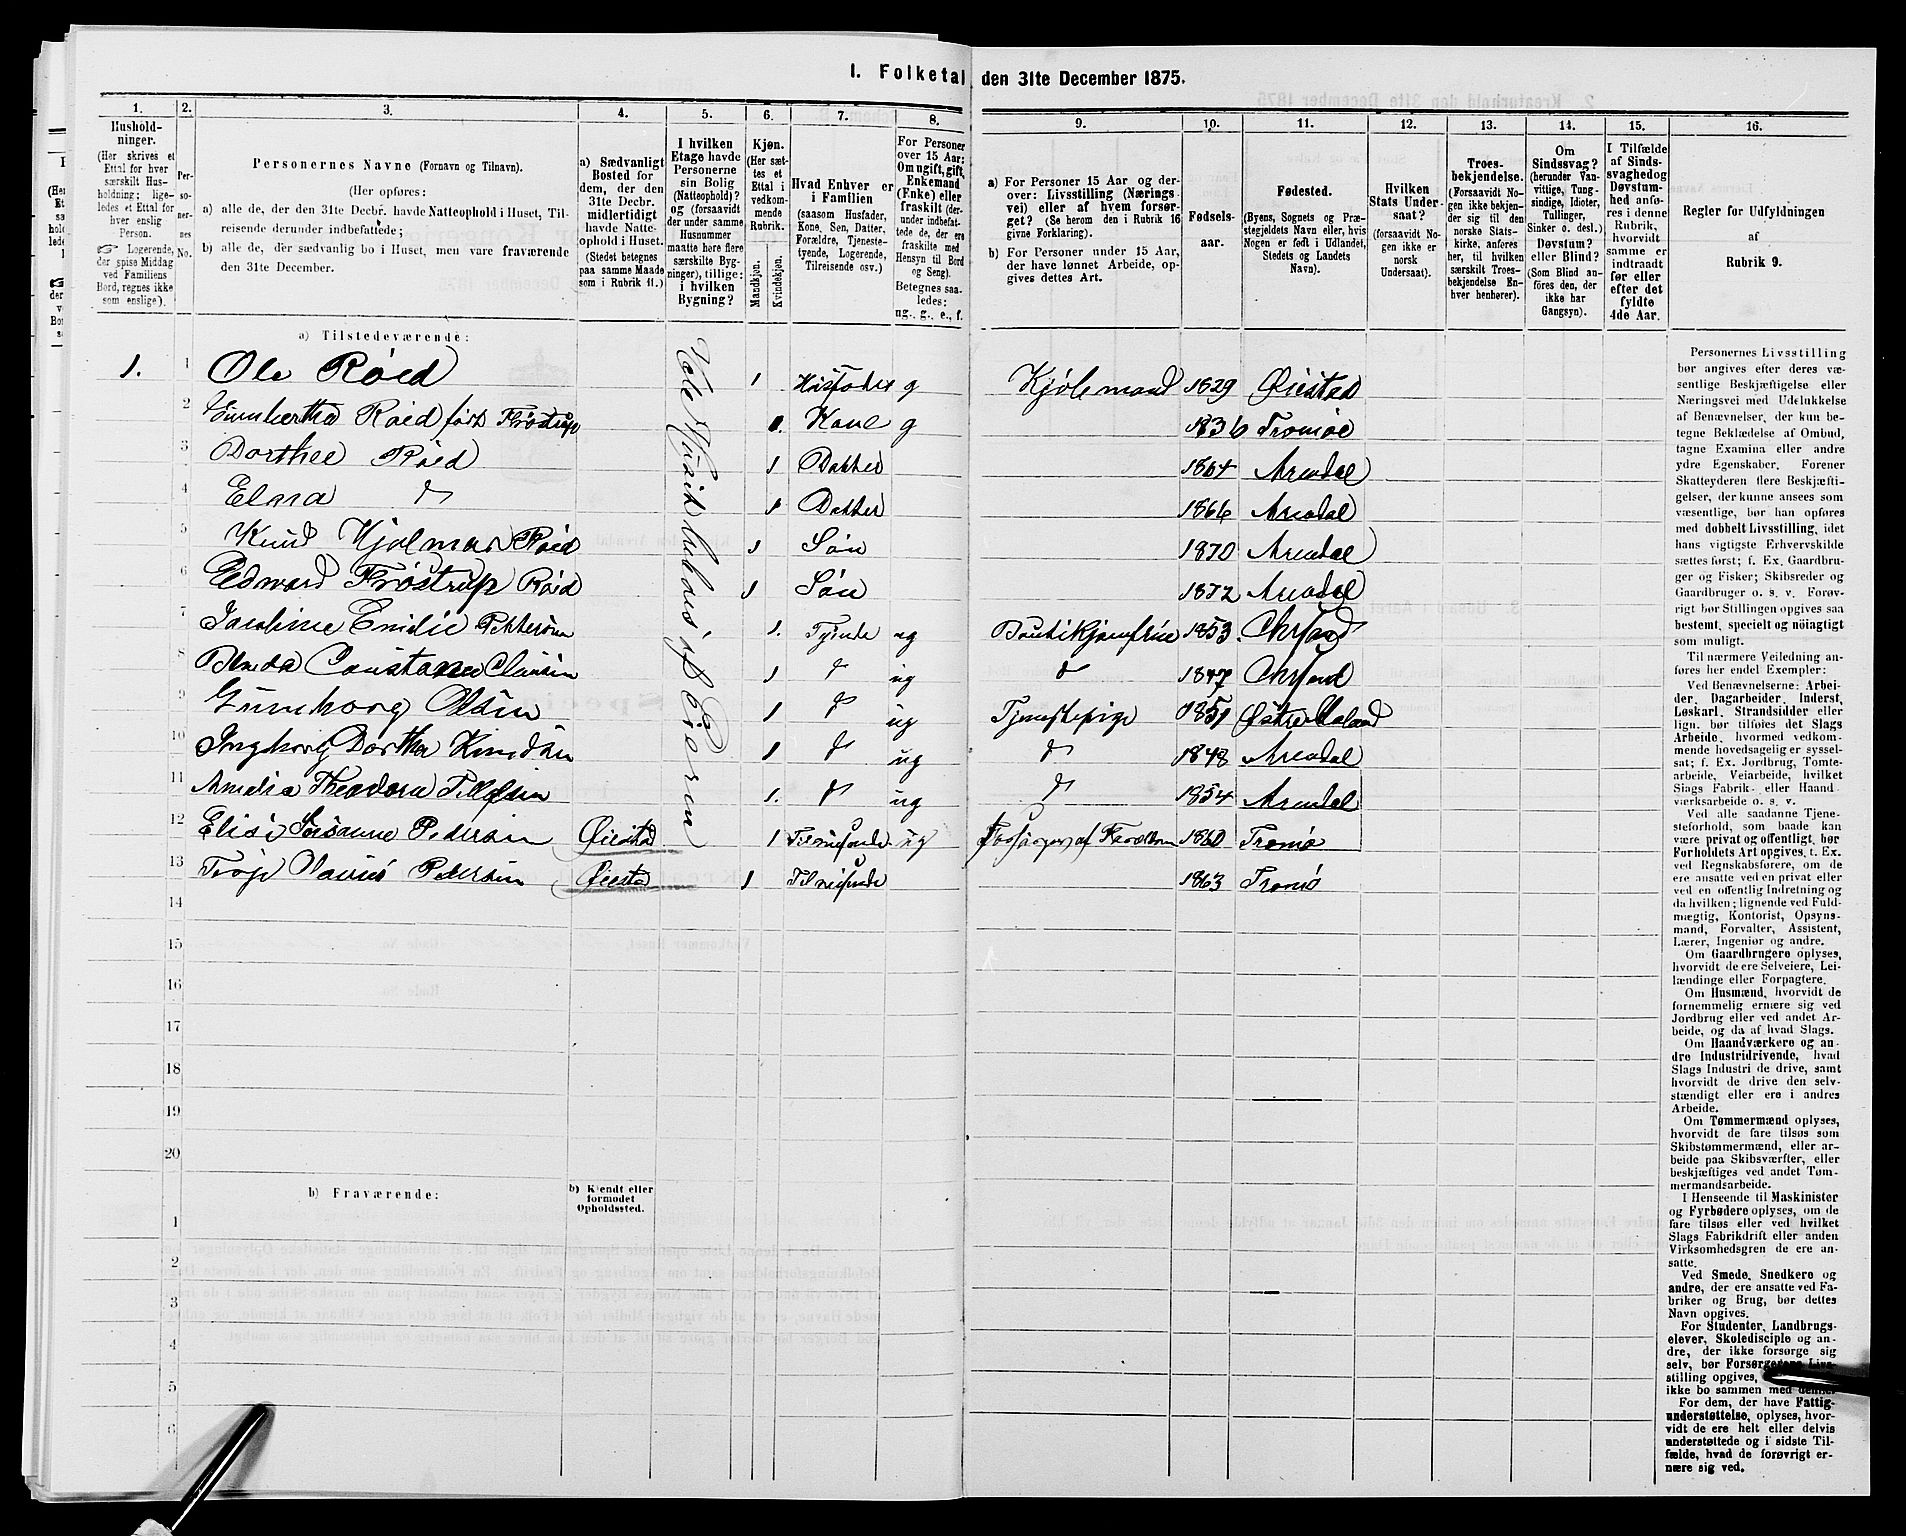 I. Folketal den 31te December 1875.
1. 2. 3. 4. 5. 6. 7. 8. 9. 10. 11. 12. 13. 14. 15. 16.
Hushold-
ninger.
(Her skrives et
Ettal for hver
særskilt Hus-
holdning; lige-
ledes et Ettal for
hver enslig
Person.
☞ Logerende,
der spise Middag
ved Familiens
Bord, regnes ikke
som enslige).
Per-
so-
ner-
nes
No.
Personernes Navne (Fornavn og Tilnavn).
(Her opføres:
a) alle de, der den 31te Decbr. havde Natteophold i Huset, Til-
reisende derunder indbefattede;
b) alle de, der sædvanlig bo i Huset, men vare fraværende
den 31te December.
a) Sædvanligt
Bosted for
dem, der den
31te Decbr.
midlertidigt
havde Natte-
ophold i Huset.
(Stedet betegnes
paa samme Maade
som i Rubrik 11.)
I hvilken
Etage havde
Personerne
sin Bolig
(Natteophold)?
og (forsaavidt
der under samme
Husnummer
maatte høre flere
særskilte Byg-
ninger), tillige:
i hvilken
Bygning?
Kjøn.
(Her sæt-
tes et
Ettal i
vedkom-
mende
Rubrik.
Mandkjøn.
Kvindekjøn.
Hvad Enhver er
i Familien
(saasom Husfader,
Kone, Søn, Datter,
Forældre, Tjeneste-
tyende, Logerende,
Tilreisende osv.)
For Personer
over 15 Aar:
Om ugift, gift,
Enkemand
(Enke) eller
fraskilt (der-
under indbefat-
tede de, der ere
fraskilte med
Hensyn til Bord
og Seng).
Betegnes saa-
ledes:
ug., g., e., f.
a) For Personer 15 Aar og der-
over: Livsstilling (Nærings-
vei) eller af hvem forsør-
get? (Se herom den i Rubrik 16
givne Forklaring.)
b) For Personer under 15 Aar,
der have lønnet Arbeide, op-
gives dettes Art.
Fødsels-
aar.
Fødested.
(Byens, Sognets og Præ-
stegjeldets Navn eller, hvis
Nogen er født i Udlandet,
Stedets og Landets
Navn).
Hvilken
Stats Under-
saat?
(forsaavidt No-
gen ikke er
norsk
Undersaat).
Troes-
bekjendelse.
(Forsaavidt No-
gen ikke bekjen-
der sig til den
norske Stats-
kirke, anføres
her, til hvilken
særskilt Troes-
bekjendelse En-
hver henhører).
Om
Sindssvag?
(herunder Van-
vittige, Tung-
sindige, Idioter,
Tullinger,
Sinker o. desl.)
Døvstum?
eller Blind?
(Som Blind an-
føres den, der
ikke har
Gangsyn).
I Tilfælde
af Sinds-
svaghed og
Døvstum-
hed anfø-
res i denne
Rubrik,
hvorvidt
samme er
indtraadt
før eller
efter det
fyldte
4de Aar.
Regler for Udfyldningen
af
Rubrik 9.
a) Tilstedeværende:
1. 1 Ole Röed 1 Husfader g Kjölemand 1829 Öiestad
2 Gunbertha Röed föds Fröstrup 1. Kone g 1836 Tromöe
3 Dorthee Röed 1 Datter 1864 Arendal
4 Elna 1 Datter 1866 Arendal
5 Knud Hjalmar Röed 1 Sön 1870 Arendal
6 Edward Fröstrup Röed 1 Sön 1872 Arendal
7 Jacobine Emilie Pettersen 1. Tjende ug 1853. Chrsand
8 Constance Clausen 1 ug 1847 Chrsand
9 Gunnborg Olsen 1 ug Tjenestepige 1851 Østre Moland
10 Ingborg Dorthea Knudsen 1 ug 1848 Arendal
11 Amelia Theodora Tellefsen 1. ug 1854 Arendal
12 Elise Susanne Pedersen Öiestad 1 Tilreisende ug Forsörges af Forældrene 1860 Tromö
13 Claus Pedersen Öiestad 1 Tilreisende 1863 Tromö
14
15
16
17
18
19
20
b) Fraværende:
b) Kjendt eller
formodet
Opholdssted.
1
2
3
4
5
6
Personernes Livsstilling
bør angives efter deres væ-
sentlige Beskjæftigelse eller
Næringsvei med Udelukkelse
af Benævnelser, der kun be-
tegne Beklædelse af Ombud,
tagne Examina eller andre
ydre Egenskaber. Forener
Skatteyderen flere Beskjæfti-
gelser, der kunne ansees som
væsentlige, bør han opføres
med dobbelt Livsstilling, idet
hans vigtigste Erhvervskilde
sættes først; f. Ex. Gaardbru-
ger og Fisker; Skibsreder og
Gaardbruger o. s. v. Forøv-
rigt bør Stillingen opgives saa
bestemt, specielt og nøiagtigt
som muligt.
Til nærmere Veiledning an-
føres her endel Exempler:
Ved Benævnelserne: Arbei-
der, Dagarbeider, Inderst,
Løskarl, Strandsidder eller
lign. bør tilføies det Slags
Arbeide, hvormed vedkom-
mende hovedsagelig er syssel-
sat; f. Ex. Jordbrug, Tomte-
arbeide, Veiarbeide, hvilket
Slags Fabrik- eller Haand-
værksarbeide o. s. v.
Ved alle saadanne Tjene-
steforhold, som baade kan
være privat og offentligt, bør
Forholdets Art opgives, t. Ex.
ved Regnskabsførere, om de
ere ansatte ved en privat eller
ved en offentlig Indretning og
da hvilken; lignende ved Fuld-
mægtig, Kontorist, Opsyns-
mand, Forvalter, Assistent,
Lærer, Ingeniør og andre.
Om Gaardbrugere oplyses,
hvorvidt de ere Selveiere, Lei-
lændinge eller Forpagtere.
Om Husmænd, hvorvidt de
fornemmelig ernære sig ved
Jordbrug eller ved andet Ar-
beide, og da af hvad Slags.
Om Haandværkere og an-
dre Industridrivende, hvad
Slags Industri de drive, samt
hvorvidt de drive den selv-
stændigt eller ere i andres
Arbeide.
Om Tømmermænd oplyses,
hvorvidt de fare tilsøs som
Skibstømmermænd, eller ar-
beide paa Skibsværfter, eller
beskjæftiges ved andet Tøm-
mermandsarbeide.
I Henseende til Maskinister
og Fyrbødere oplyses, om de
fare tilsøs eller ved hvilket
Slags Fabrikdrift eller anden
Virksomhedsgren de ere an-
satte.
Ved Smede, Snedkere og
andre, der ere ansatte ved Fa-
briker og Brug, bør dettes
Navn opgives.
For Studenter, Landbrugs-
elever, Skoledisciple og an-
dre, der ikke forsørge sig
selv, bør Forsørgerens Livs-
stilling opgives,
ikke bo sammen med denne.
For dem, der have Fattig-
understøttelse, oplyses, hvor-
vidt de ere helt eller delvis
understøttede og i sidste Til-
fælde, hvad de forøvrigt er-
nære sig ved.